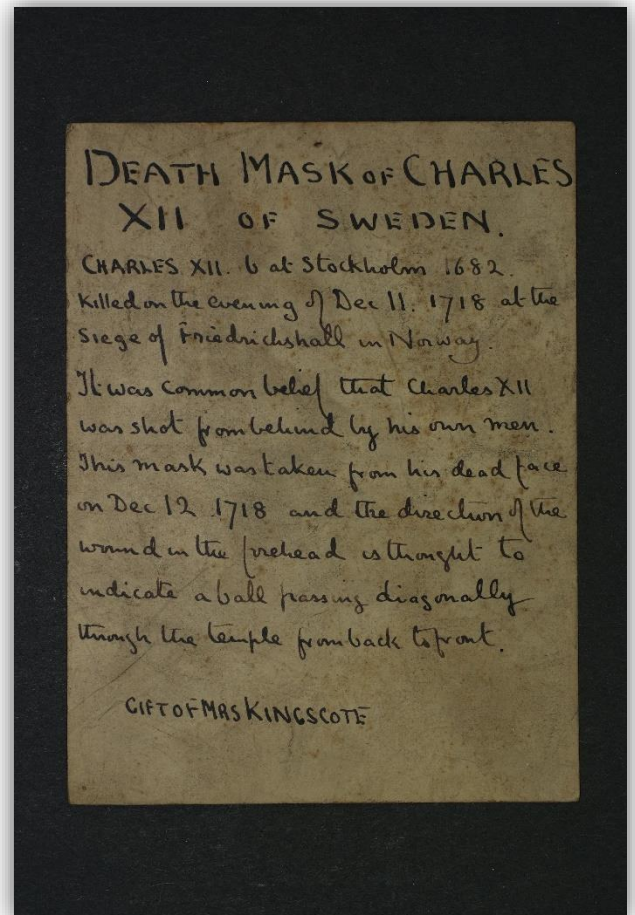 DEATH MASK OF CHARLES
XII OF SWEDEN.
CHARLES XII. b at Stockholm 1682.
Killed on the evening of Dec 11. 1718 at the
Siege of Friedrichshall in Norway.
It was common belief that Charles XII
was shot from behind by his own men.
This mask was taken from his dead face
on Dec 12 1718 and the direction of the
wound in the forehead is thought to
indicate a ball passing diagonally
through the temple from back to front.
GIFT OF MRS KINGSCOTE